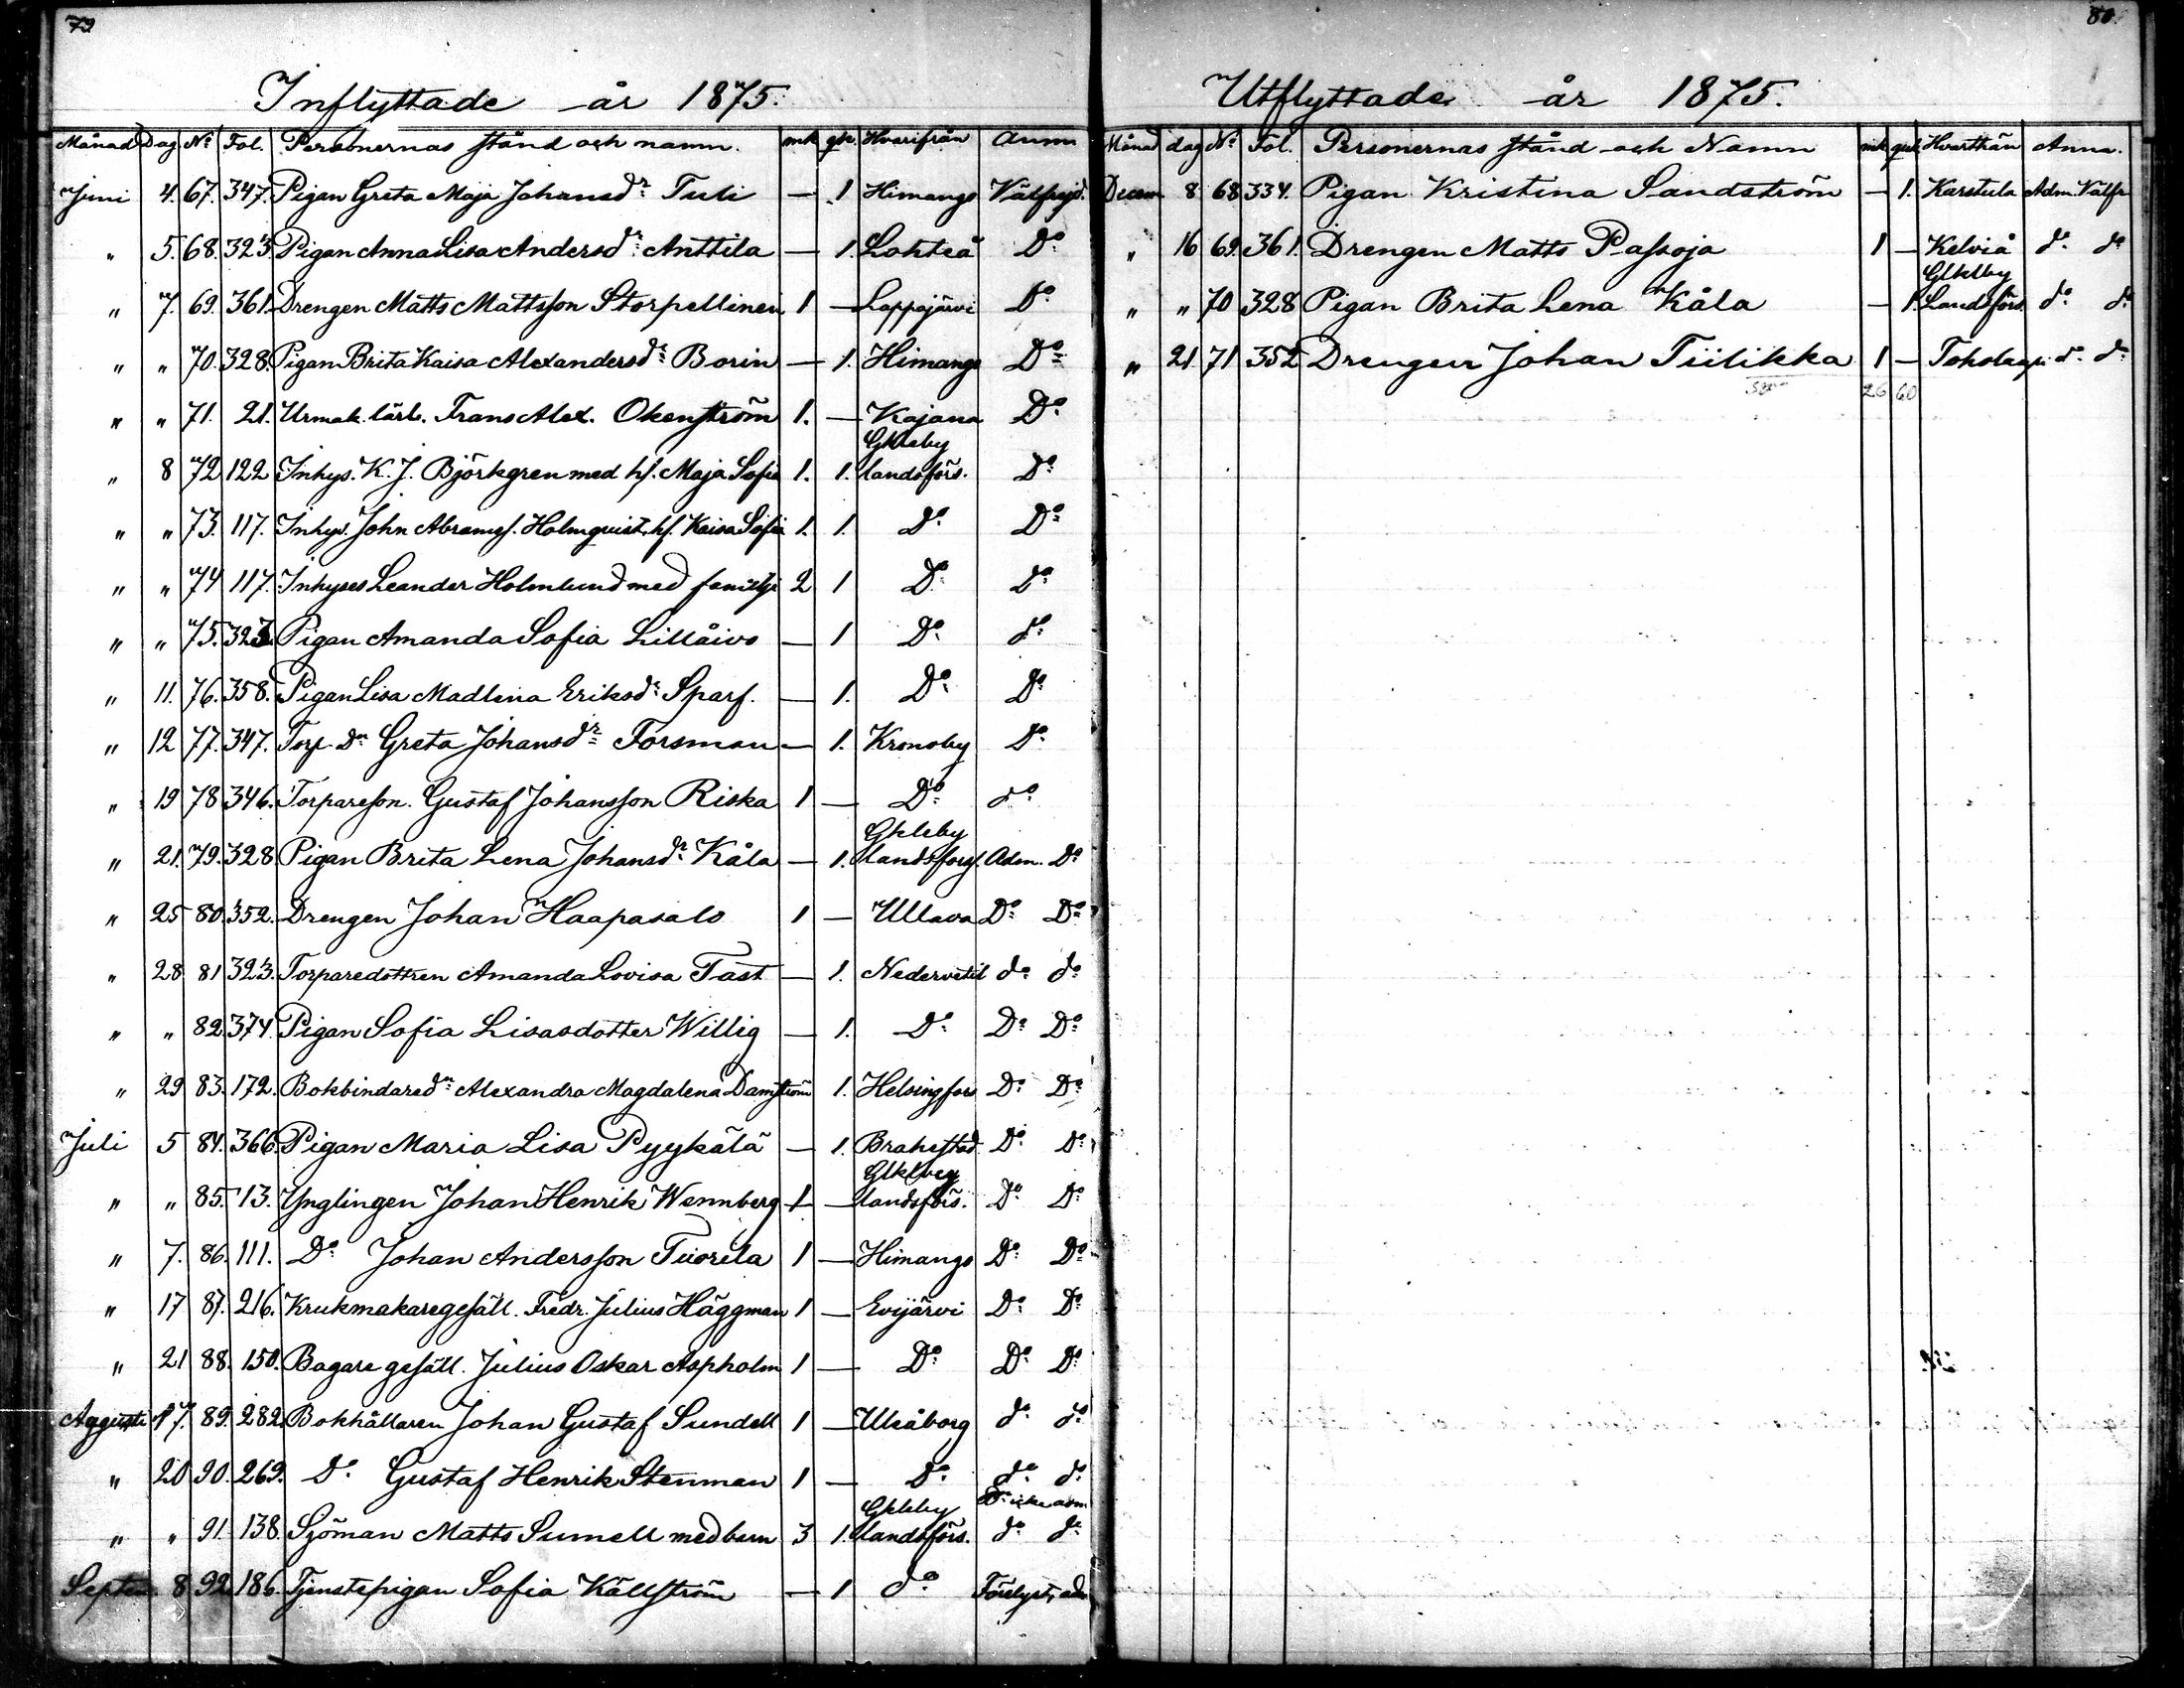 79
Inflyttade år 1875.
Månad Dag No Fol. Personernas stånd och namn. mk qk. Hvarifrån Anm
Juni 4. 67. 347. Pigan Greta Maja Johansdr Tuli — 1 Himango Välfrejd.
" 5. 68. 323. Pigan Anna Lisa Andersdr Anttila — 1. Lohteå Do
" 7. 69. 361. Drengen Matts Mattsson Storpellinen 1 — Lappajärvi Do
" " 70. 328. Pigan Brita Kaisa Alexandersdr Borin — 1. Himango Do
" " 71. 21. Urmak. lärl. Frans Alex. Okenström 1. — Kajana Do
" 8 72 122 Inhys. K. J. Björkgren med h. Maja Sofia 1. 1. Glkleby landsförs. Do
" " 73. 117. Inhys. John Abramss. Holmquist, h. Kaisa Sofia 1. 1. Do Do
" " 74 117. Inhyses Leander Holmlund med familje 2 1 Do Do
" " 75. 323. Pigan Amanda Sofia Lillåivo — 1 Do do
" 11. 76. 358. Pigan Lisa Madlena Eriksdr Sparf. — 1. Do Do
" 12 77. 347. Torp. dn Greta Johansdr Forsman — 1. Kronoby Do
" 19 78 346. Torpareson. Gustaf Johansson Riska 1 — Do do
" 21. 79. 328. Pigan Brita Lena Johansdr Kåla — 1. Glkleby landsförs. Adm. Do
" 25 80. 352. Drengen Johan Haapasalo 1 — Ullava Do Do
" 28 81 323. Torparedottren Amanda Lovisa Tast — 1. Nedervetil do do
" " 82. 374. Pigan Sofia Lisasdotter Willig — 1. Do Do Do
" 29 83. 172. Bokbindaredn Alexandra Magdalena Damström 1. Helsingfors Do Do
Juli 5 84. 366. Pigan Maria Lisa Pyykälä — 1. Brahestad Do Do
" " 85. 13. Ynglingen Johan Henrik Wennberg 1 — Glkleby landsförs. Do Do
" 7. 86. 111. Do Johan Andersson Tuorila 1 — Himango Do Do
" 17 87. 216. Krukmakaregesäll. Fredr. Julius Häggman 1 — Evijärvi Do Do
" 21 88. 150. Bagare gesäll. Julius Oskar Aspholm 1 — Do Do Do
Augusti 17. 89. 282. Bokhållaren Johan Gustaf Sundell 1 — Uleåborg do do
" 20 90. 269. Do Gustaf Henrik Stenman 1 — Do do do
" " 91. 138. Sjöman Matts Sumell med barn 3 1. Glkleby landsförs. icke adm do do
Septem. 8 92. 186. Tjenstepigan Sofia Källström — 1 do
80.
Utflyttade år 1875.
Månad dag No Fol. Personernas stånd och Namn mk qvk Hvarthän Anm.
Decem 8 68 334. Pigan Kristina Sandström — 1. Karstula Adm. Välfr
" 16 69. 361. Drengen Matts Passoja 1 — Kelviå do do
" " 70 328 Pigan Brita Lena Kåla — 1. Glkleby Landsförs. do do
" 21. 71 352 Drengen Johan Tiilikka 1 — Toholampi do do
26 60